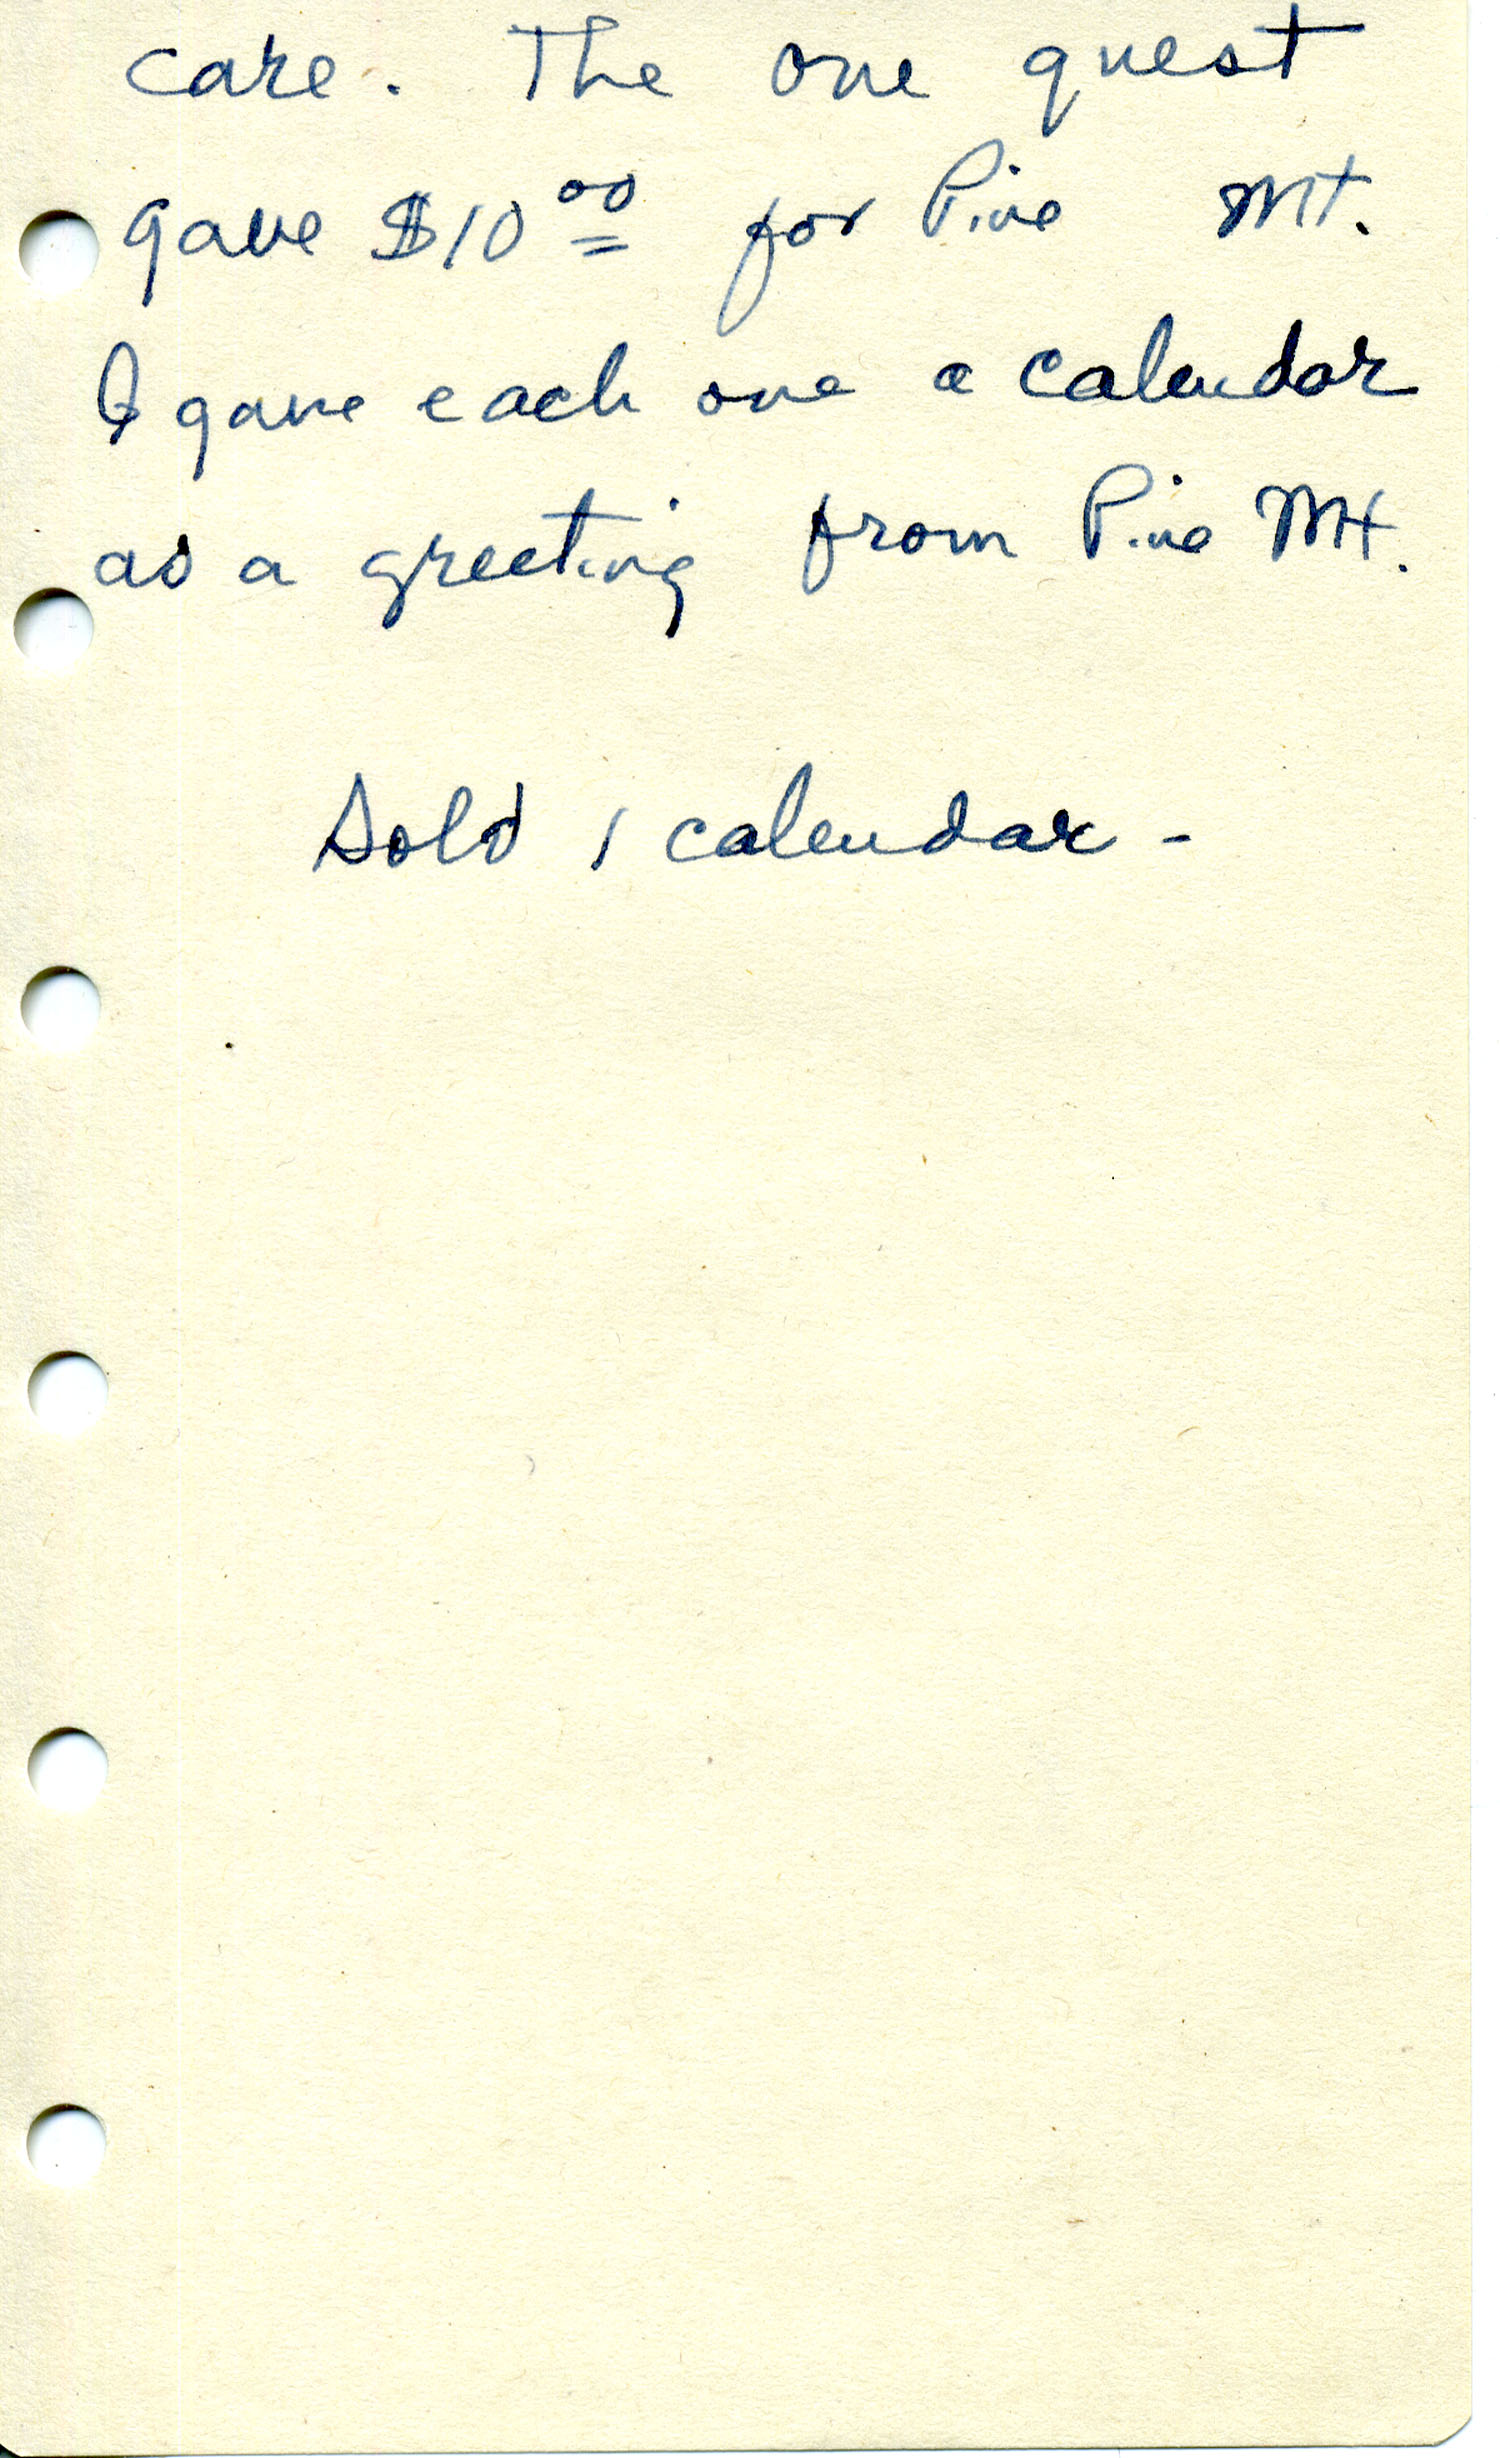 care. The one guest
gave $10.00 for Pine Mt.
I gave each one a calendar
as a greeting from Pine Mt.
Sold 1 calendar -